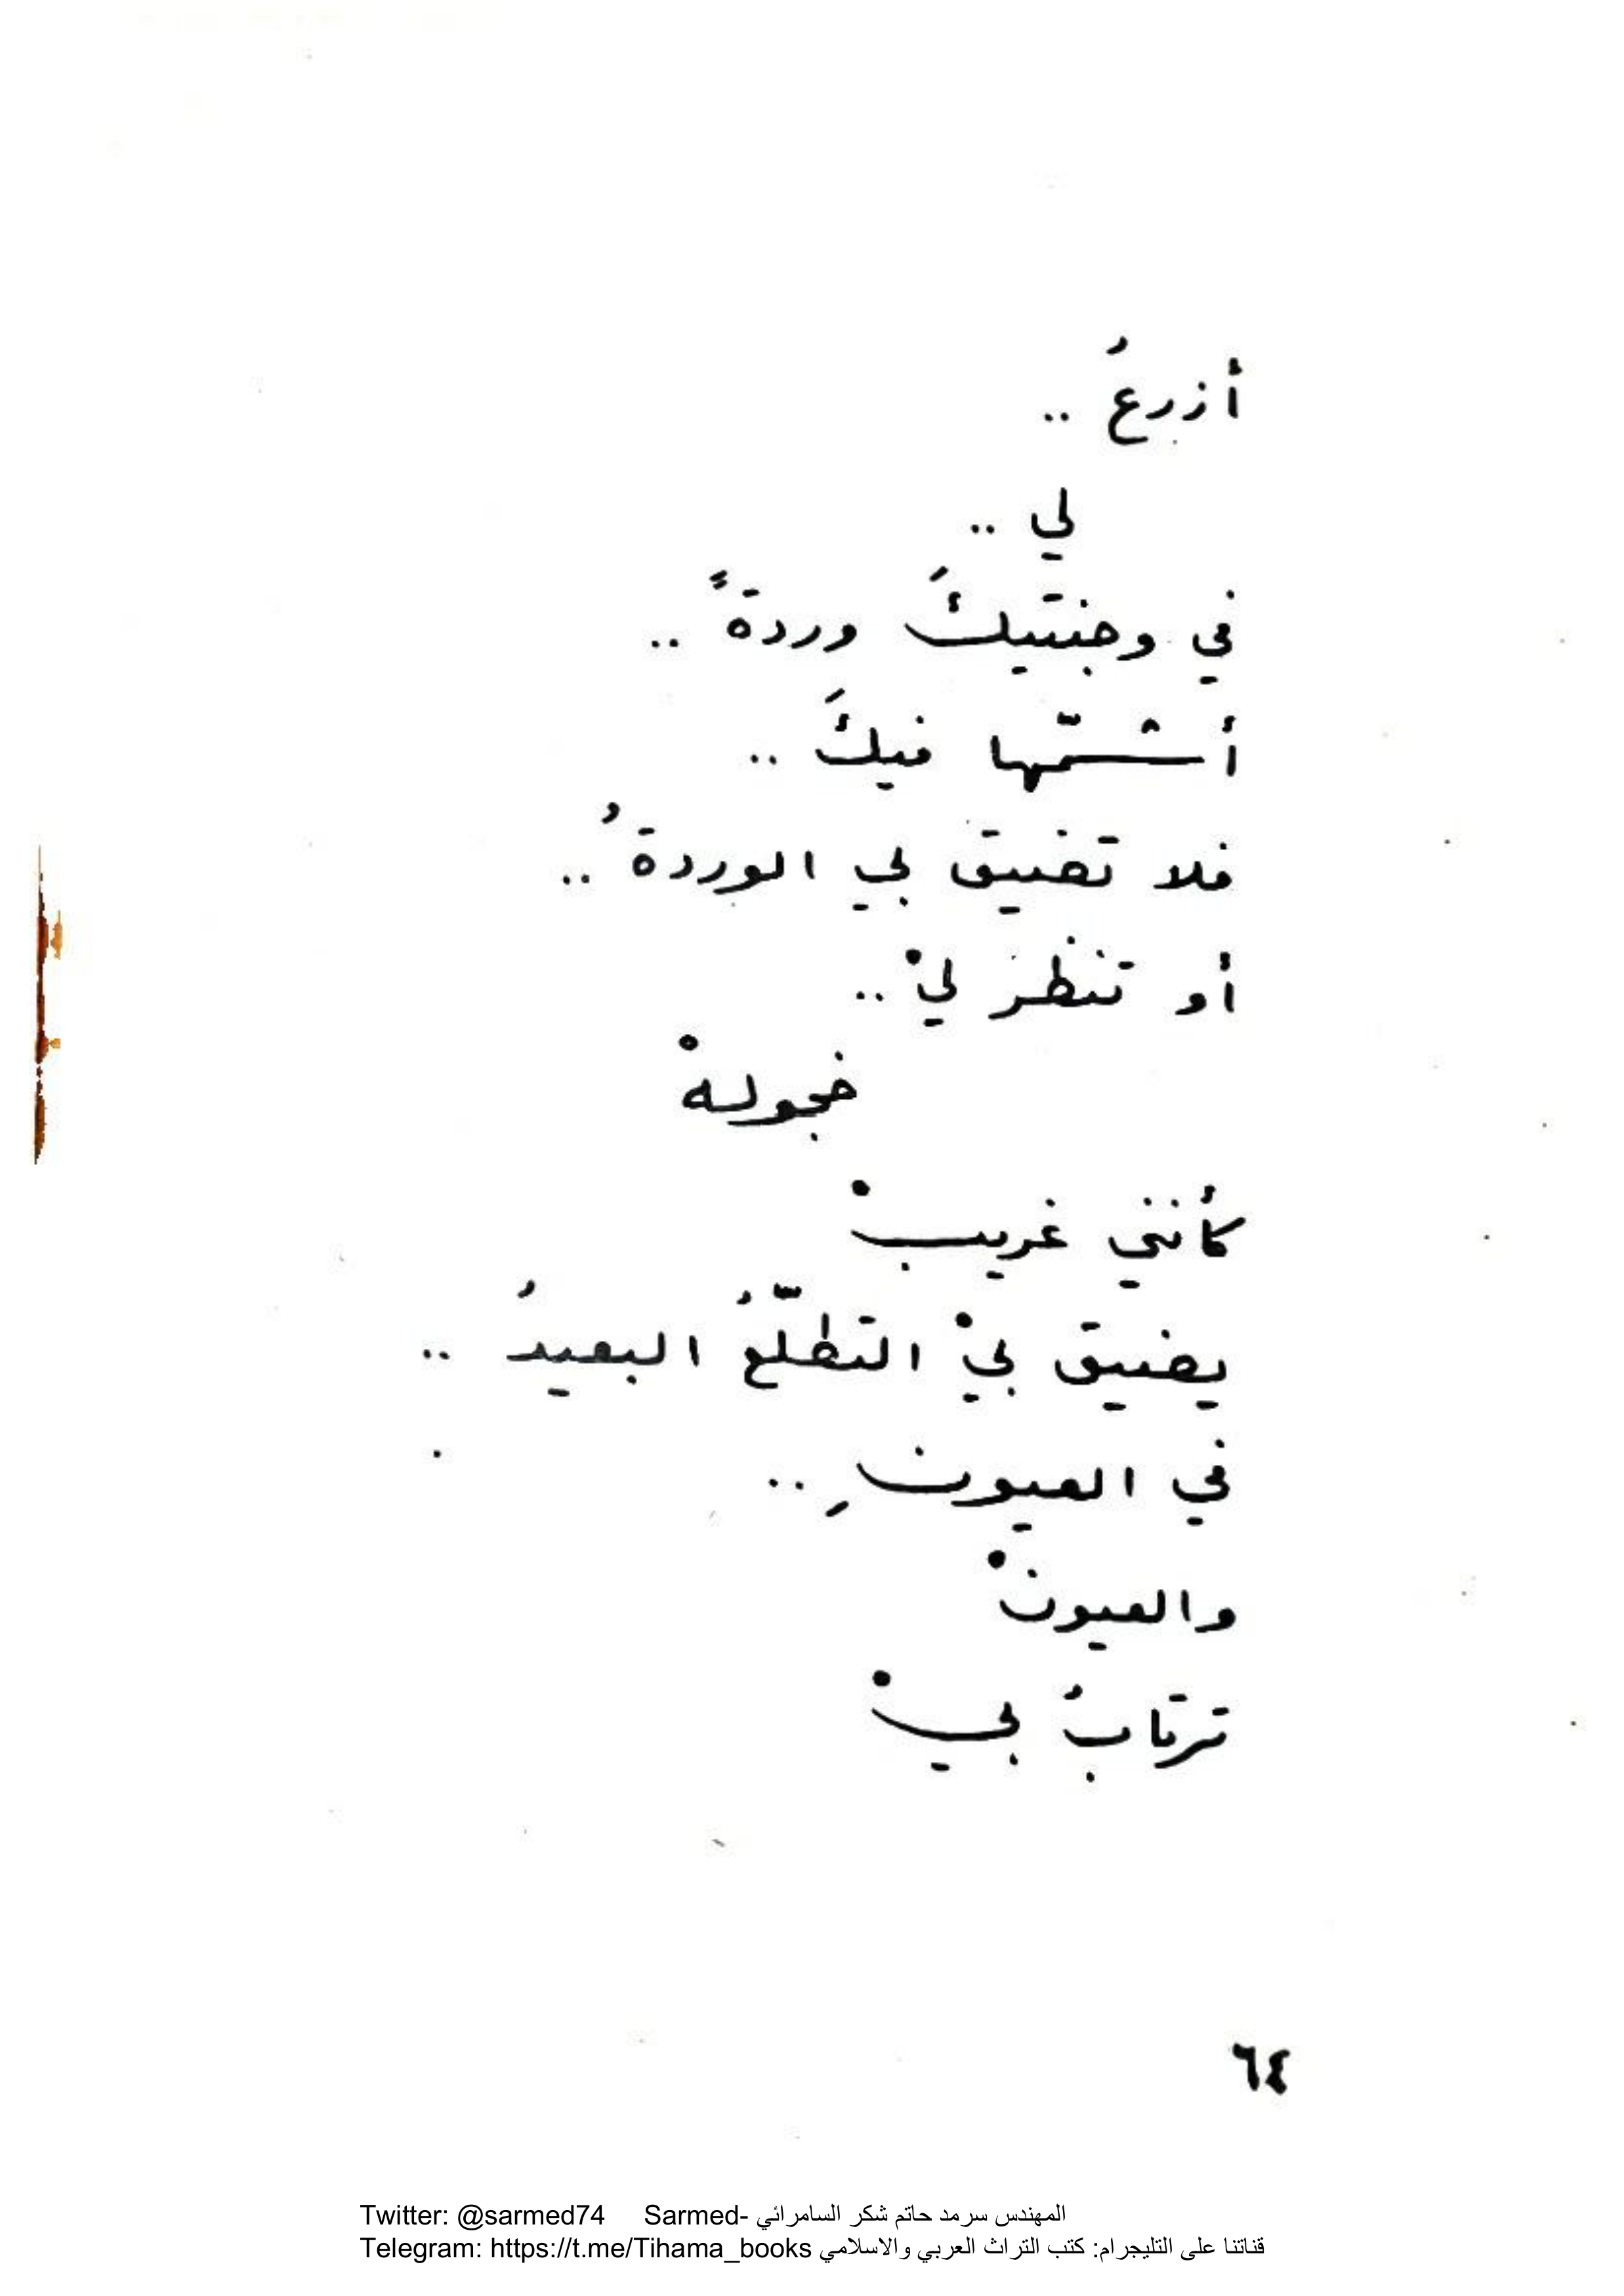 أزرعُ ..
لي ..
في وجنتيكَ وردةً ..
أشمّها فيكَ ..
فلا تضيق بي الوردةُ ..
أو تنظر ليْ ..
خجولهْ
كأنني غريبْ
يضيق بيْ التطلّعُ البعيدُ ..
في العيونِ ..
والعيونْ
ترتابُ بيْ
٦٤
Twitter: @sarmed74 Sarmed- المهندس سرمد حاتم شكر السامرائي
Telegram: https://t.me/Tihama_books قناتنا على التليجرام: كتب التراث العربي والاسلامي